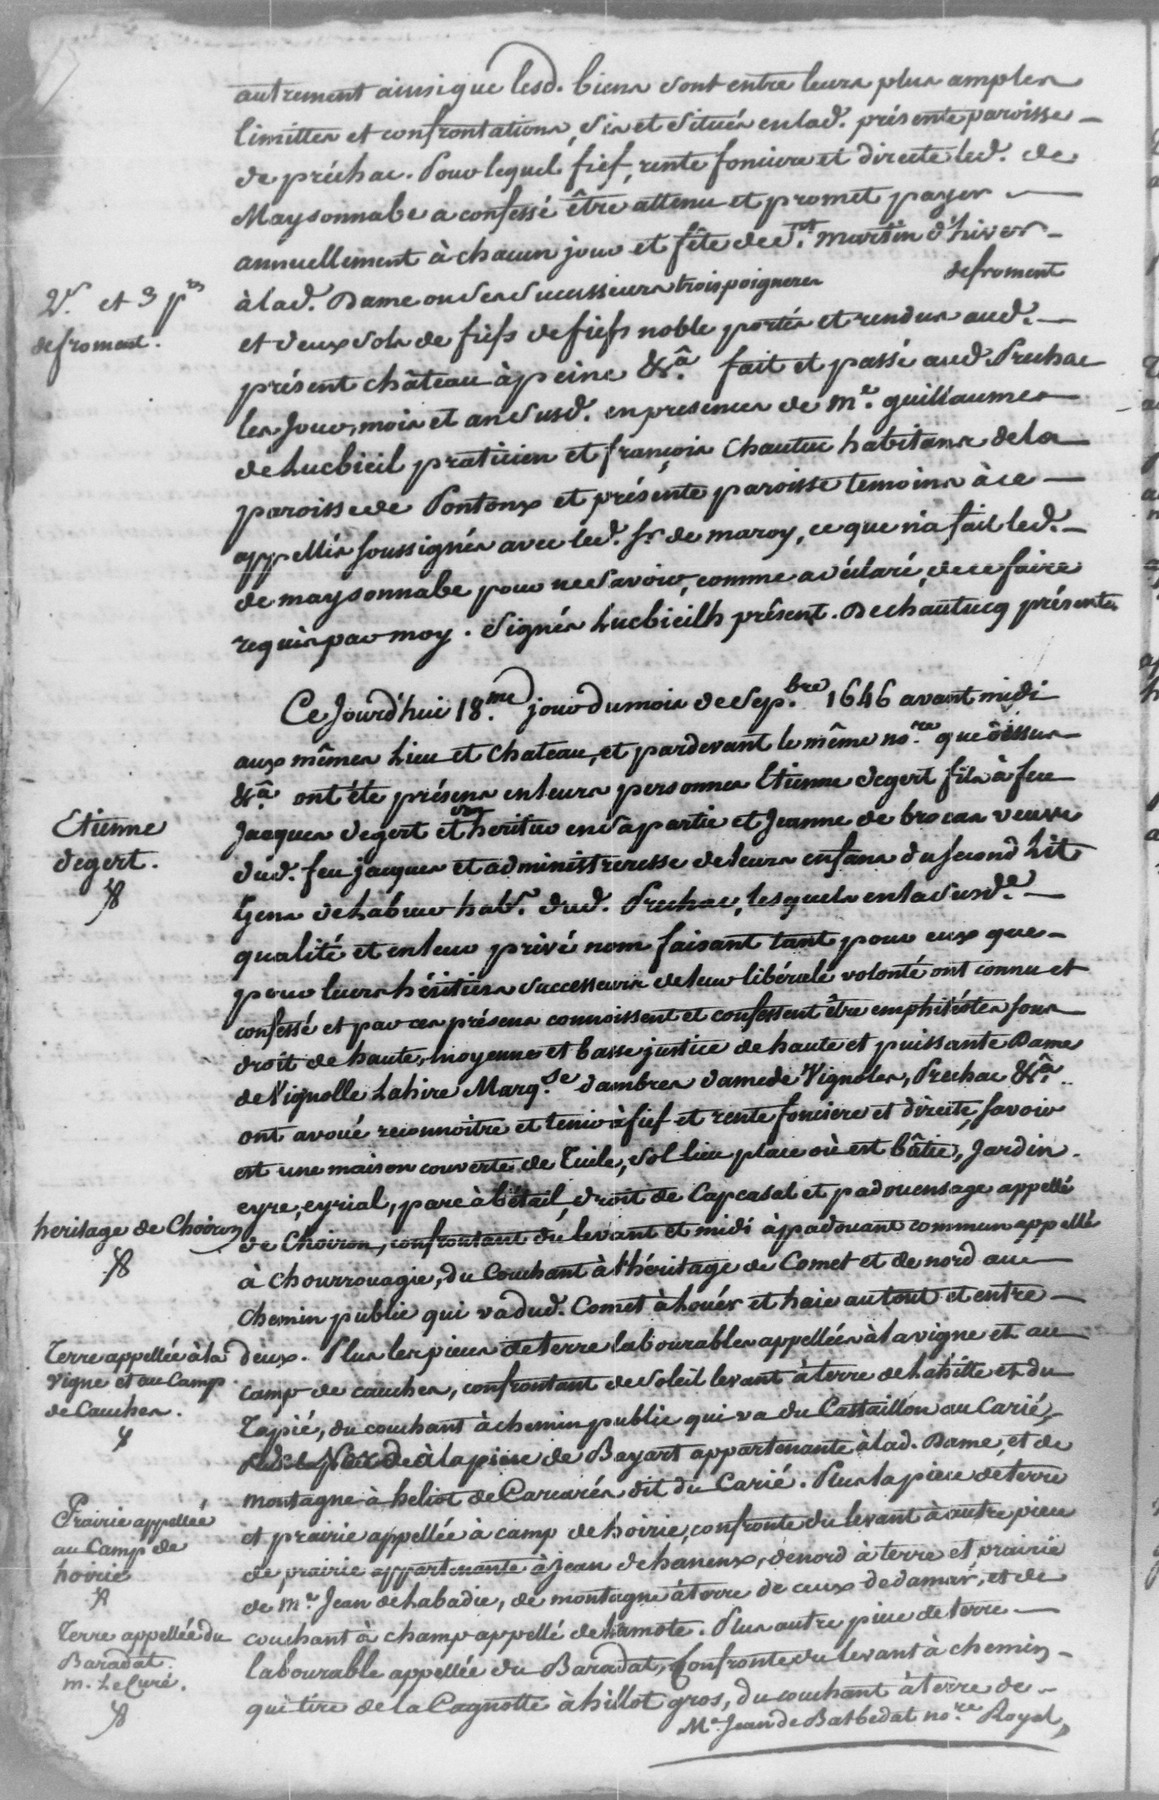 autrement ainsique lesd. biens sont entre leurs plus amples
limittes et confrontations, sis et situés en lad. présente paroisse
de préchac. Pour lequel fief, rente fonciere et directe led. de
Maysonnabe a confessé être attenu et promet payer
annuellement à chacun jour et fête de St. martin d'hiver
2 s. et 3 prs
de froment.
à lad. Dame ou ses successeurs trois poigneres de froment
et deux sols de fiefs de fiefs noble portés et rendus aud.
présent château à peine &a. fait et passé aud Prechac
les Jour, mois et an susd. en presences de me. guillaumes
de Lucbieil praticien et françois Chautuc habitans de la
paroisse de Pontonx et présente paroisse temoins à ce
appellés soussignés avec led. sr. de maroy, ce que n'a fait led.
de maysonnabe pour ne savoir, comme a déclaré, de ce faire
requis par moy. Signés Lucbieilh présent. Dechautucq présent
Ce Jourd'hui 18.me jour du mois de Sep.bre 1646 avant midi
aux mêmes Lieu et Chateau, et pardevant le même no.re que dessus
&a. ont été présens en leurs personnes Etienne degert fils à feu
Etienne
degert.
Jacques degert et son heritier en sa partie et Jeanne de brocas veuve
dud. feu jacques et administreresse de leurs enfans du second Lit
Gens de Labeur habs. dud. Prechac, lesquels en la susd.e
qualité et en leur privé nom faisant tant pour eux que
pour leurs héritiers successeurs de leur libérale volonté ont connu et
confessé et par ces présens connoissent et confessent être emphitéotes sous
droit de haute, moyenne et basse justice de haute et puissante Dame
de Vignolle Lahire Marq.se dambres dame de Vignoles, Prechac &a.
ont avoué reconnoitre et tenir à fief et rente fonciere et directe, savoir
est une maison couverte de Tuile, sol lieu place où est bâtie, Jardin
eyre, eyrial, parc à bétail, droit de Capcasal et padouensage appellé
heritage de Choiron
de Choiron, confrontant du levant et midi à padouant commun appellé
à Chourrouagie, du Couchant à l'héritage de Comet et de nord au
chemin public qui va dud. Comet à houés et haie autout et entre
Terre appellée à la
vigne et au Camp
de Cauches.
deux. Plus les pieces de terre labourables appellées à la vigne et au
camp de cauches, confrontant de soleil levant à terre de Lahitte et du
Tapié, du couchant à chemin public qui va du Castaillon au Carié,
de Nord à la piece de Bayart appartenante à lad. Dame, et de
montagne à heliot de Carcarés dit du Carié. Plus la piece de terre
Prairie appellée
au Camp de
hoirie
et prairie appellée à camp de hoirie, confronte du levant à autre piece
de prairie appartenante à jean de hanenx, de nord à terre et prairie
de me. Jean de Labadie, de montagne à terre de ceux de damas, et de
Terre appellée du
Baradat.
m. Le Curé.
couchant à champ appellé de Lamote. Plus autre piece de terre
labourable appellée du Baradat, Confronte du levant à chemin
qui tire de la Cagnotte à hillot gros, du couchant à terre de
Me. Jean de Batbedat no.re Royal,